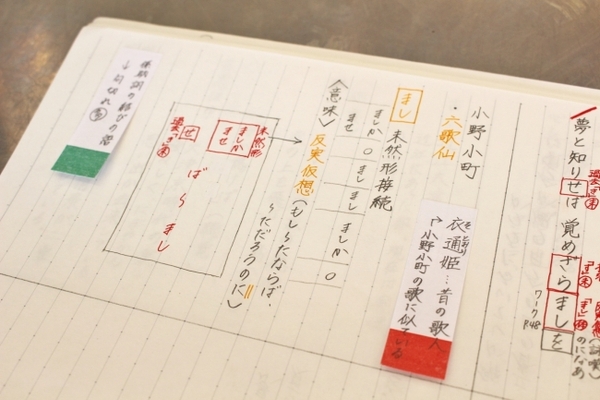 夢と知りせば 覚めざらましを
ワークP.48
小野小町
・六歌仙
衣通姫…昔の歌人
↱小野小町の歌に似ている
まし 未然形接続
ませ
ましか
○
まし
まし
ましか
○
〈意味〉
反実仮想(もしらたならば、
らただろうのに)
未然形
ましか
ませ
せ
過去「き」未
ば ら まし
係助詞の結びの省
↓句切れ